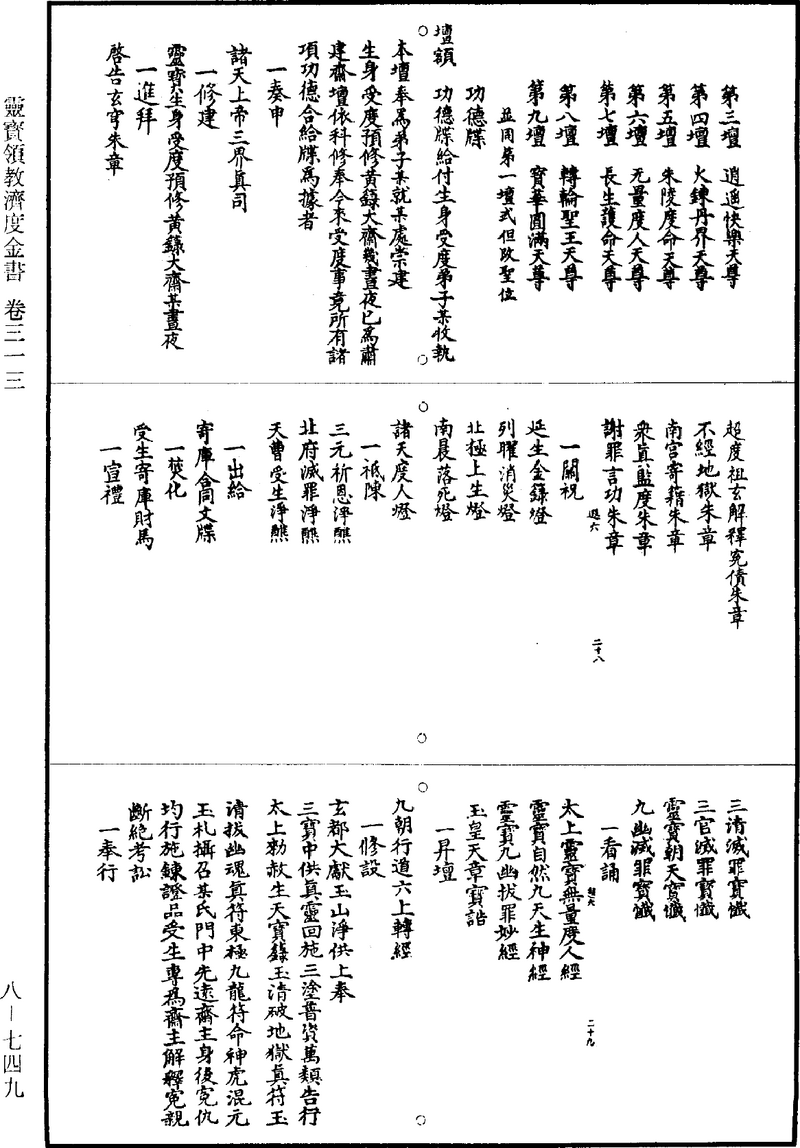 第三壇　逍遥快樂天尊
第四壇　火鍊丹界天尊
第五壇　朱陵度命天尊
第六壇　无量度人天尊
第七壇　長生護命天尊
第八壇　轉輪聖王天尊
第九壇　寶華圓滿天尊
並同第一壇式但改聖位
功德牒
壇額　功德牒給付生身受度弟子某收執
本壇奉爲弟子某就某處崇建
生身受度預修黄籙大齋幾晝夜已爲肅
建齋壇依科修奉今來受度事竟所有諸
項功德合給牒爲據者
一奏申
諸天上帝三界眞司
一修建
靈寶生身受度預修黄籙大齋某晝夜
一進拜
啓告玄穹朱章
超度祖玄解釋寃債朱章
不經地獄朱章
南宫寄籍朱章
衆眞監度朱章
謝罪言功朱章
二十八
一關祝
延生金籙燈
列曜消災燈
北極上生燈
南晨落死燈
諸天度人燈
一祗陳
三元祈恩淨醮
北府滅罪淨醮
天曹受生淨醮
一出給
寄庫合同文牒
一焚化
受生寄庫財馬
一宣禮
三清滅罪寶懺
三官滅罪寶懺
靈寶朝天寶懺
九幽滅罪寶懺
一看誦
太上靈寶無量度人經
二十九
靈寶自然九天生神經
靈寶九幽拔罪妙經
玉皇天章寶誥
一昇壇
九朝行道六上轉經
一修設
玄都大獻玉山淨供上奉
三寶中供眞靈回施三塗普資萬類告行
太上勑赦生天寶籙玉清破地獄眞符玉
清拔幽魂眞符東極九龍符命神虎混元
玉札攝召某氏門中先遠齋主身後寃仇
均行施鍊證品受生專爲齋主解釋寃親
斷絶考訟
一奉行
靈寶領教濟度金書　卷三一三
八－七四九